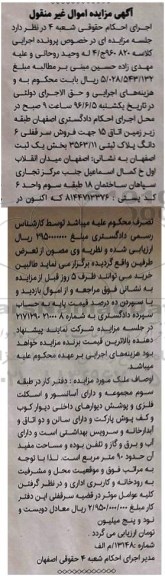 آگهی مزایده اموال غیر منقول
اجرای احکام حقوقی شعبه ۴ در نظر دارد
جلسه مزایده ای در خصوص پرونده اجرایی
کلاسه ۹۶۰۸۲۰ ج/۴ له وحید روحانی و علیه
مهدی زاده حسین مبنی بر مطالبه مبلغ
۵/۰۲۸/۵۴۳/۱۳۲ ریال بابت محکوم به و
هزینه‌های اجرایی و حق الاجرای دولتی
در تاریخ یکشنبه ۹۶/۶/۵ ساعت ۹ صبح در
محل اجرای احکام دادگستری اصفهان طبقه
زیر زمین اتاق ۱۵ جهت فروش سرقفلی ۶
دانگ پلاک ثبتی ۳۵۶۳/۱۱ بخش یک ثبت
اصفهان به نشانی: اصفهان میدان انقلاب
اول خ کمال اسماعیل جنب مرکز تجاری
سپاهان ساختمان ۱۸ طبقه سوم واحد ۶
کد پستی: ۸۱۴۴۷۱۳۳۷۶ که اکنون در
تصرف محکوم علیه میباشد توسط کارشناس
رسمی دادگستری مبلغ ۲۹۵۰۰۰۰۰۰۰ ریال
ارزیابی شده و نظریه وی مصون از تعرض
طرفین واقع گردیده برگزار می نماید طالبین
خرید می توانند ظرف ۵ روز قبل از مزایده
به نشانی فوق مراجعه و از اموال بازدید و
با سپردن ده درصد قیمت پایه به حساب
سپرده دادگستری به شماره
در جلسه مزایده شرکت نمایند پیشنهاد
دهنده بالاترین قیمت برنده مزایده خواهد
بود هزینه‌های اجرایی بر عهده محکوم علیه
میباشد
اوصاف ملک مورد مزایده : دفتر کار در طبقه
سوم مجموعه و دارای آسانسور و اسکلت
فلزی و پوشش دیوارهای داخلی دیوار کوب
و کف پوش پارکت و دارای سالن و دو اتاق و
آبدارخانه و سرویس بهداشتی است و دارای
آب و برق و گاز و تلفن بوده و مساحت مفید
آن حدود ۹۰ متر مربع است. لذا با توجه
به مراتب فوق و موقعیت محل و مشرفیت
به رودخانه و کاربری اداری و در نظر گرفتن
کلیه عوامل موثر در قضیه سرقفلی این دفتر
کار مبلغ ۲/۹۵۰/۰۰۰/۰۰۰ ریال معادل دویست و
نود و پنج میلیون
تومان ارزیابی می گردد .
شماره: ۱۳۱۴۸/م الف
مدیر اجرای احکام شعبه ۴ حقوقی اصفهان